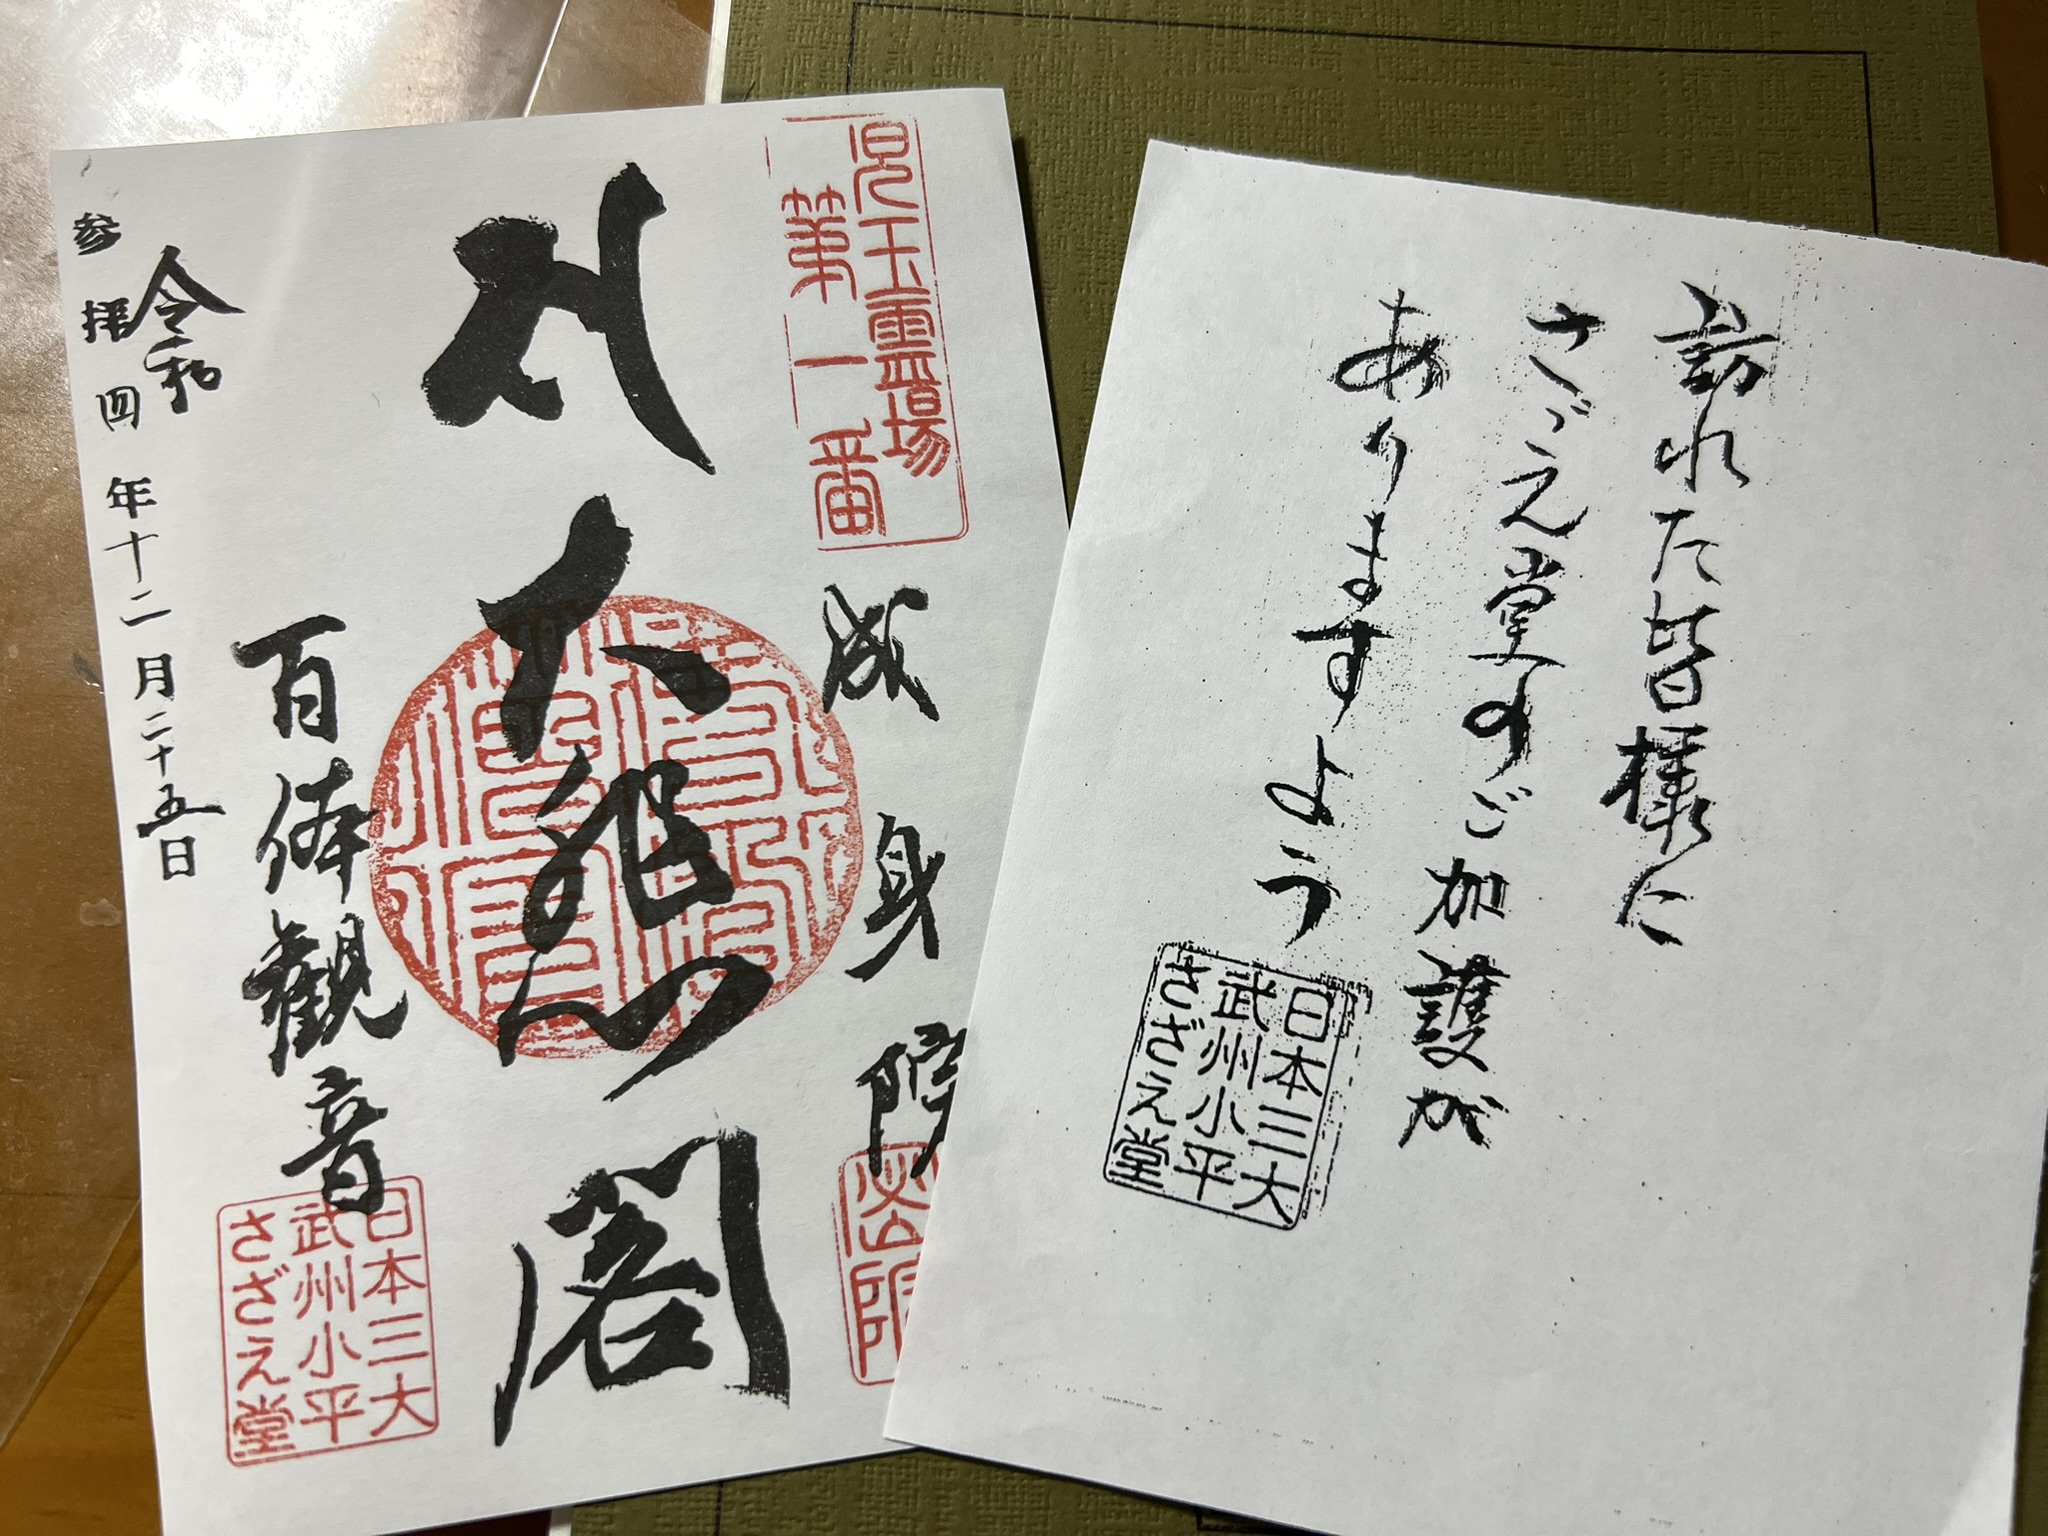 児玉霊場
第一番
成身院
大悲閣
百体観音
令和
参拝四年十二月二十五日
日本三大
武州小平
さざえ堂
訪れた皆様に
さゞえ堂のご加護が
ありますよう
日本三大
武州小平
さざえ堂